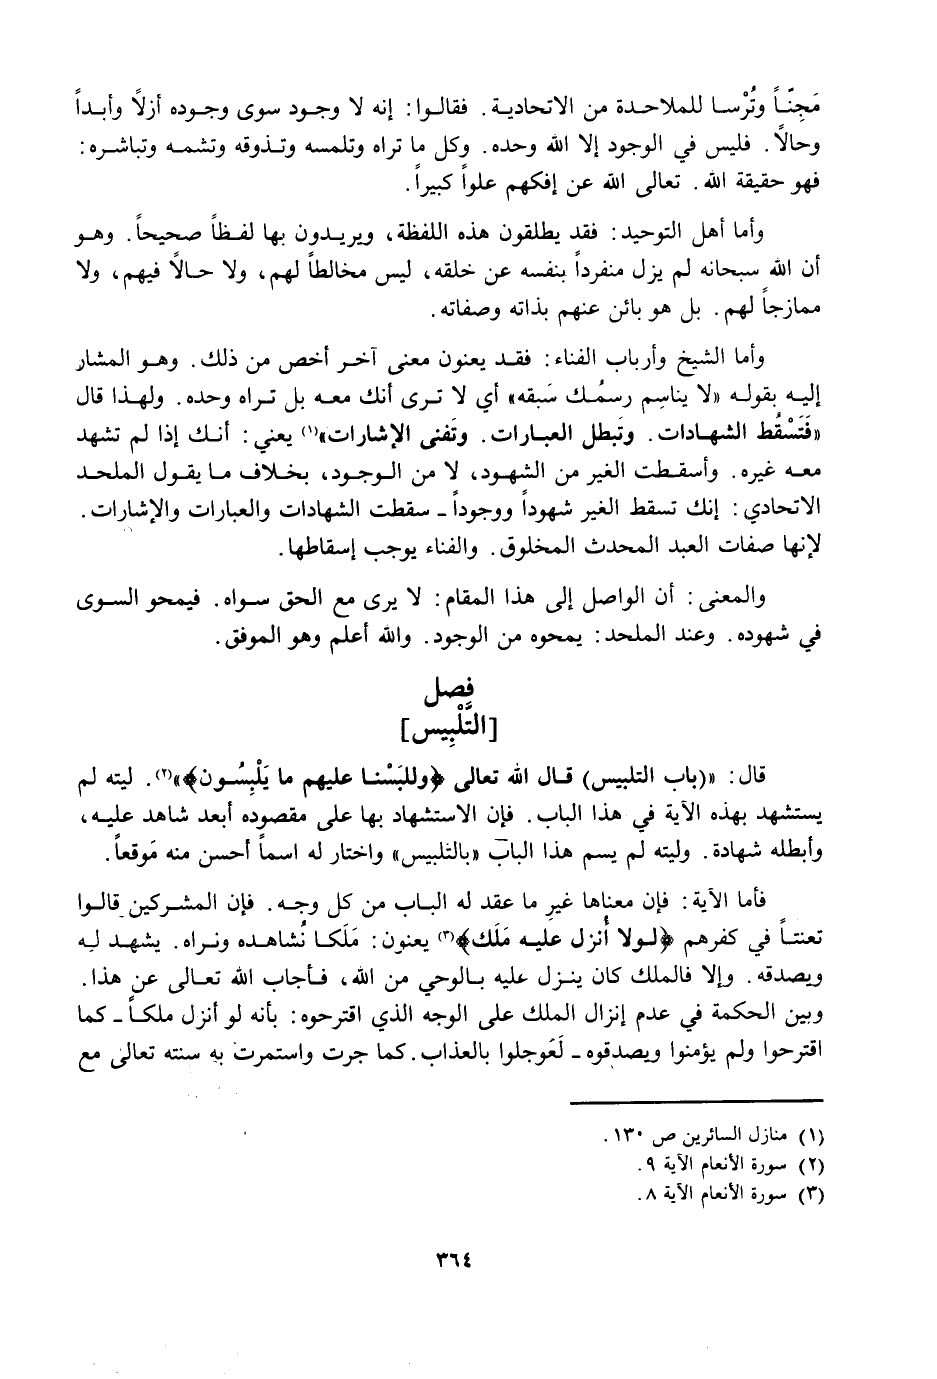 مَجِنّاً وتُرْسا للملاحدة من الاتحادية. فقالوا: إنه لا وجود سوى وجوده أزلاً وأبداً
وحالاً. فليس في الوجود إلا الله وحده. وكل ما تراه وتلمسه وتذوقه وتشمه وتباشره:
فهو حقيقة الله. تعالى الله عن إفكهم علواً كبيراً.
وأما أهل التوحيد: فقد يطلقون هذه اللفظة، ويريدون بها لفظاً صحيحاً. وهو
أن الله سبحانه لم يزل منفرداً بنفسه عن خلقه، ليس مخالطاً لهم، ولا حالاً فيهم، ولا
ممازجاً لهم. بل هو بائن عنهم بذاته وصفاته.
وأما الشيخ وأرباب الفناء: فقد يعنون معنى آخر أخص من ذلك. وهو المشار
إليه بقوله «لا يناسِم رسمُك سَبقه» أي لا ترى أنك معه بل تراه وحده. ولهذا قال
«فَتَسْقُط الشهادات. وتَبطل العبارات. وتَفنى الإشارات»(١) يعني: أنك إذا لم تشهد
معه غيره. وأسقطت الغير من الشهود، لا من الوجود، بخلاف ما يقول الملحد
الاتحادي: إنك تسقط الغير شهوداً ووجوداً ـ سقطت الشهادات والعبارات والإشارات.
لإنها صفات العبد المحدث المخلوق. والفناء يوجب إسقاطها.
والمعنى: أن الواصل إلى هذا المقام: لا يرى مع الحق سواه. فيمحو السوى
في شهوده. وعند الملحد: يمحوه من الوجود. والله أعلم وهو الموفق.
فصل
[التَّلْبِيس]
قال: «(باب التلبيس) قال الله تعالى ﴿وللبَسْنا عليهم ما يَلْبِسُون﴾»(٢). ليته لم
يستشهد بهذه الآية في هذا الباب. فإن الاستشهاد بها على مقصوده أبعد شاهد عليه،
وأبطله شهادة. وليته لم يسم هذا الباب «بالتلبيس» واختار له اسماً أحسن منه مَوقعاً.
فأما الآية: فإن معناها غير ما عقد له الباب من كل وجه. فإن المشركين قالوا
تعنتاً في كفرهم ﴿لولا أُنزل عليه مَلَك﴾(٣) يعنون: مَلَكا نُشاهده ونراه. يشهد له
ويصدقه. وإلا فالملك كان ينزل عليه بالوحي من الله، فأجاب الله تعالى عن هذا.
وبين الحكمة في عدم إنزال الملك على الوجه الذي اقترحوه: بأنه لو أنزل ملكاً ـ كما
اقترحوا ولم يؤمنوا ويصدقوه ـ لَعُوجلوا بالعذاب. كما جرت واستمرت به سنته تعالى مع
(١) منازل السائرين ص ١٣٠.
(٢) سورة الأنعام الآية ٩.
(٣) سورة الأنعام الآية ٨.
٣٦٤